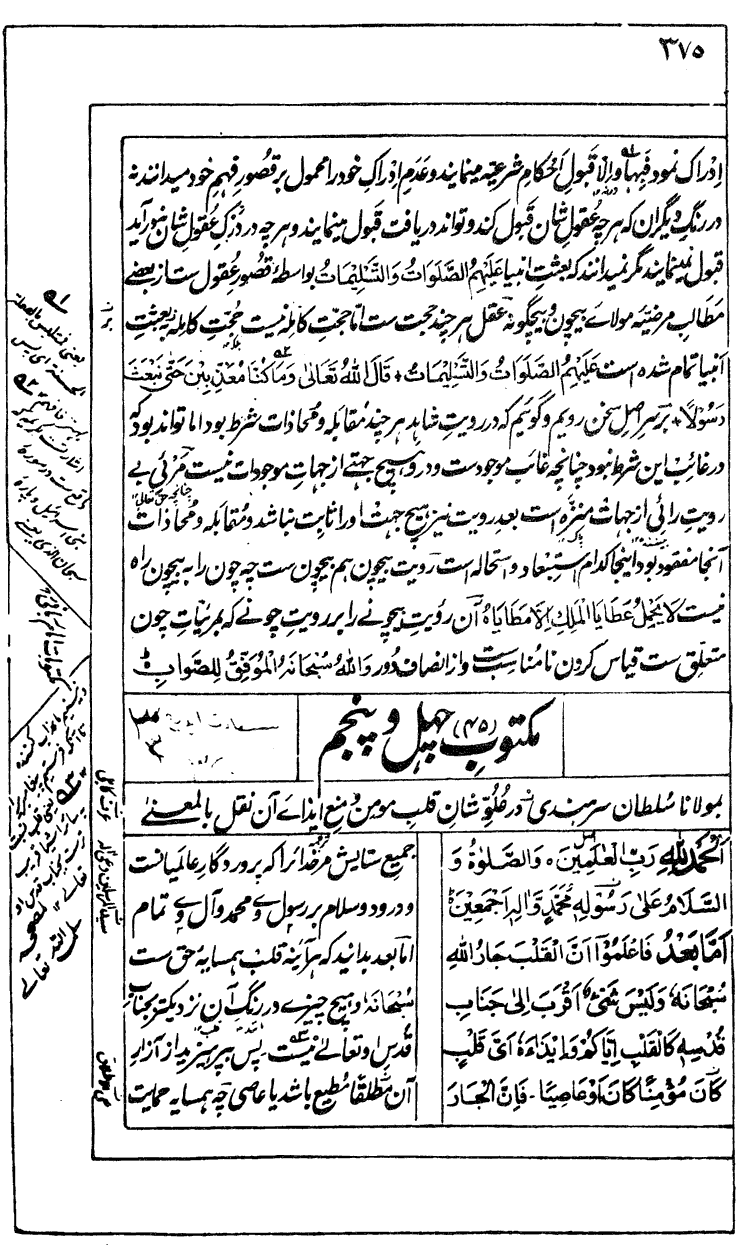 ٣٧٥
اِدراک نمود فبِها و اِلّا قبولِ اَحکامِ شرعیّه مینمایند و عدمِ اِدراکِ خود را محمول بر قصورِ فہمِ خود میدانند نه
در رنگِ دیگران که هرچه عُقولِ شان قبول کند و تواند دریافت قبول مینمایند و هرچه در دَرکِ عُقولِ شان نبر آید
قبول نمینمایند مگر نمیدانند که بعثتِ انبیا عَلَیْهِمُ الصَّلَوَاتُ وَالتَّسْلِیْمَاتُ بواسطهٔ قصورِ عُقول ست از بعضے
مطالبِ مرضیّهٔ مولاے بیچون و بیچگونه عقل هر چند حجت ست امّا حجتِ کامله نیست حُجّتِ کامله به بعثتِ
اَنبیا تمام شده است عَلَیْهِمُ الصَّلَوَاتُ وَالتَّسْلِیْمَاتُ قَالَ اللهُ تَعَالٰی وَمَا کُنَّا مُعَذِّبِیْنَ حَتّٰی نَبْعَثَ
رَسُوْلًا بر سرِ اصلِ سخن رویم و گوئیم که در رویتِ شاہد هر چند مقابله و محاذات شرط بود اما تواند بود که
در غائب این شرط نبود چنانچه غائب موجودست و درو هیچ جہتے از جہاتِ موجودات نیست مرئی بے
رویتِ رائی از جہات منزّه است بعدِ رویت نیز هیچ جہت او را ثابت نباشد و مقابله و محاذات
آنجا مفقود بود اینجا کدام اِستبعاد و استحاله است رویتِ بیچون هم بیچون ست چه چون را به بیچون راه
نیست لَا یَحْمِلُ عَطَایَا الْمَلِكِ اِلَّا مَطَایَاهُ آن رؤیتِ بیچونے را بر رویتِ چونے که بمرئیاتِ چون
متعلّق ست قیاس کردن نامُناسب ست و از انصاف دُور وَاللهُ سُبْحَانَهُ الْمُوَفِّقُ لِلصَّوَابِ
مکتوبِ (٤٥) چہل و پنجم
بمولانا سُلطان سرہندی در عُلُوِّ شانِ قلبِ مومن و منعِ ایذاے آن نقل بالمعنے
اَلْحَمْدُ لِلّٰهِ رَبِّ الْعٰلَمِیْنَ وَالصَّلٰوةُ وَ
السَّلَامُ عَلٰی رَسُوْلِهٖ مُحَمَّدٍ وَّاٰلِهٖ اَجْمَعِیْنَ
اَمَّا بَعْدُ فَاعْلَمُوْا اَنَّ الْقَلْبَ جَارُ اللهِ
سُبْحَانَهٗ وَلَیْسَ شَیْءٌ اَقْرَبَ اِلٰی جَنَابِ
قُدْسِهٖ کَالْقَلْبِ اِیَّاکُمْ وَاِیْذَاءَهٗ اَیَّ قَلْبٍ
کَانَ مُؤْمِنًا کَانَ اَوْ عَاصِیًا ۔ فَاِنَّ الْجَارَ
جمیعِ ستایش مر خدائرا که پروردگارِ عالمیانست
و درود و سلام بر رسولِ وے محمد و آلِ وے تمام
اما بعد بدانید که هر آئینه قلب همسایهٔ حق ست
سُبْحانهٗ و هیچ چیزے در رنگِ آن نزدیکتر بجنابِ
قدسِ او تعالےٰ نیست پس بپرہیزید از آزارِ
آن مطلقًا مُطیع باشد یا عاصی چه همسایه حمایت